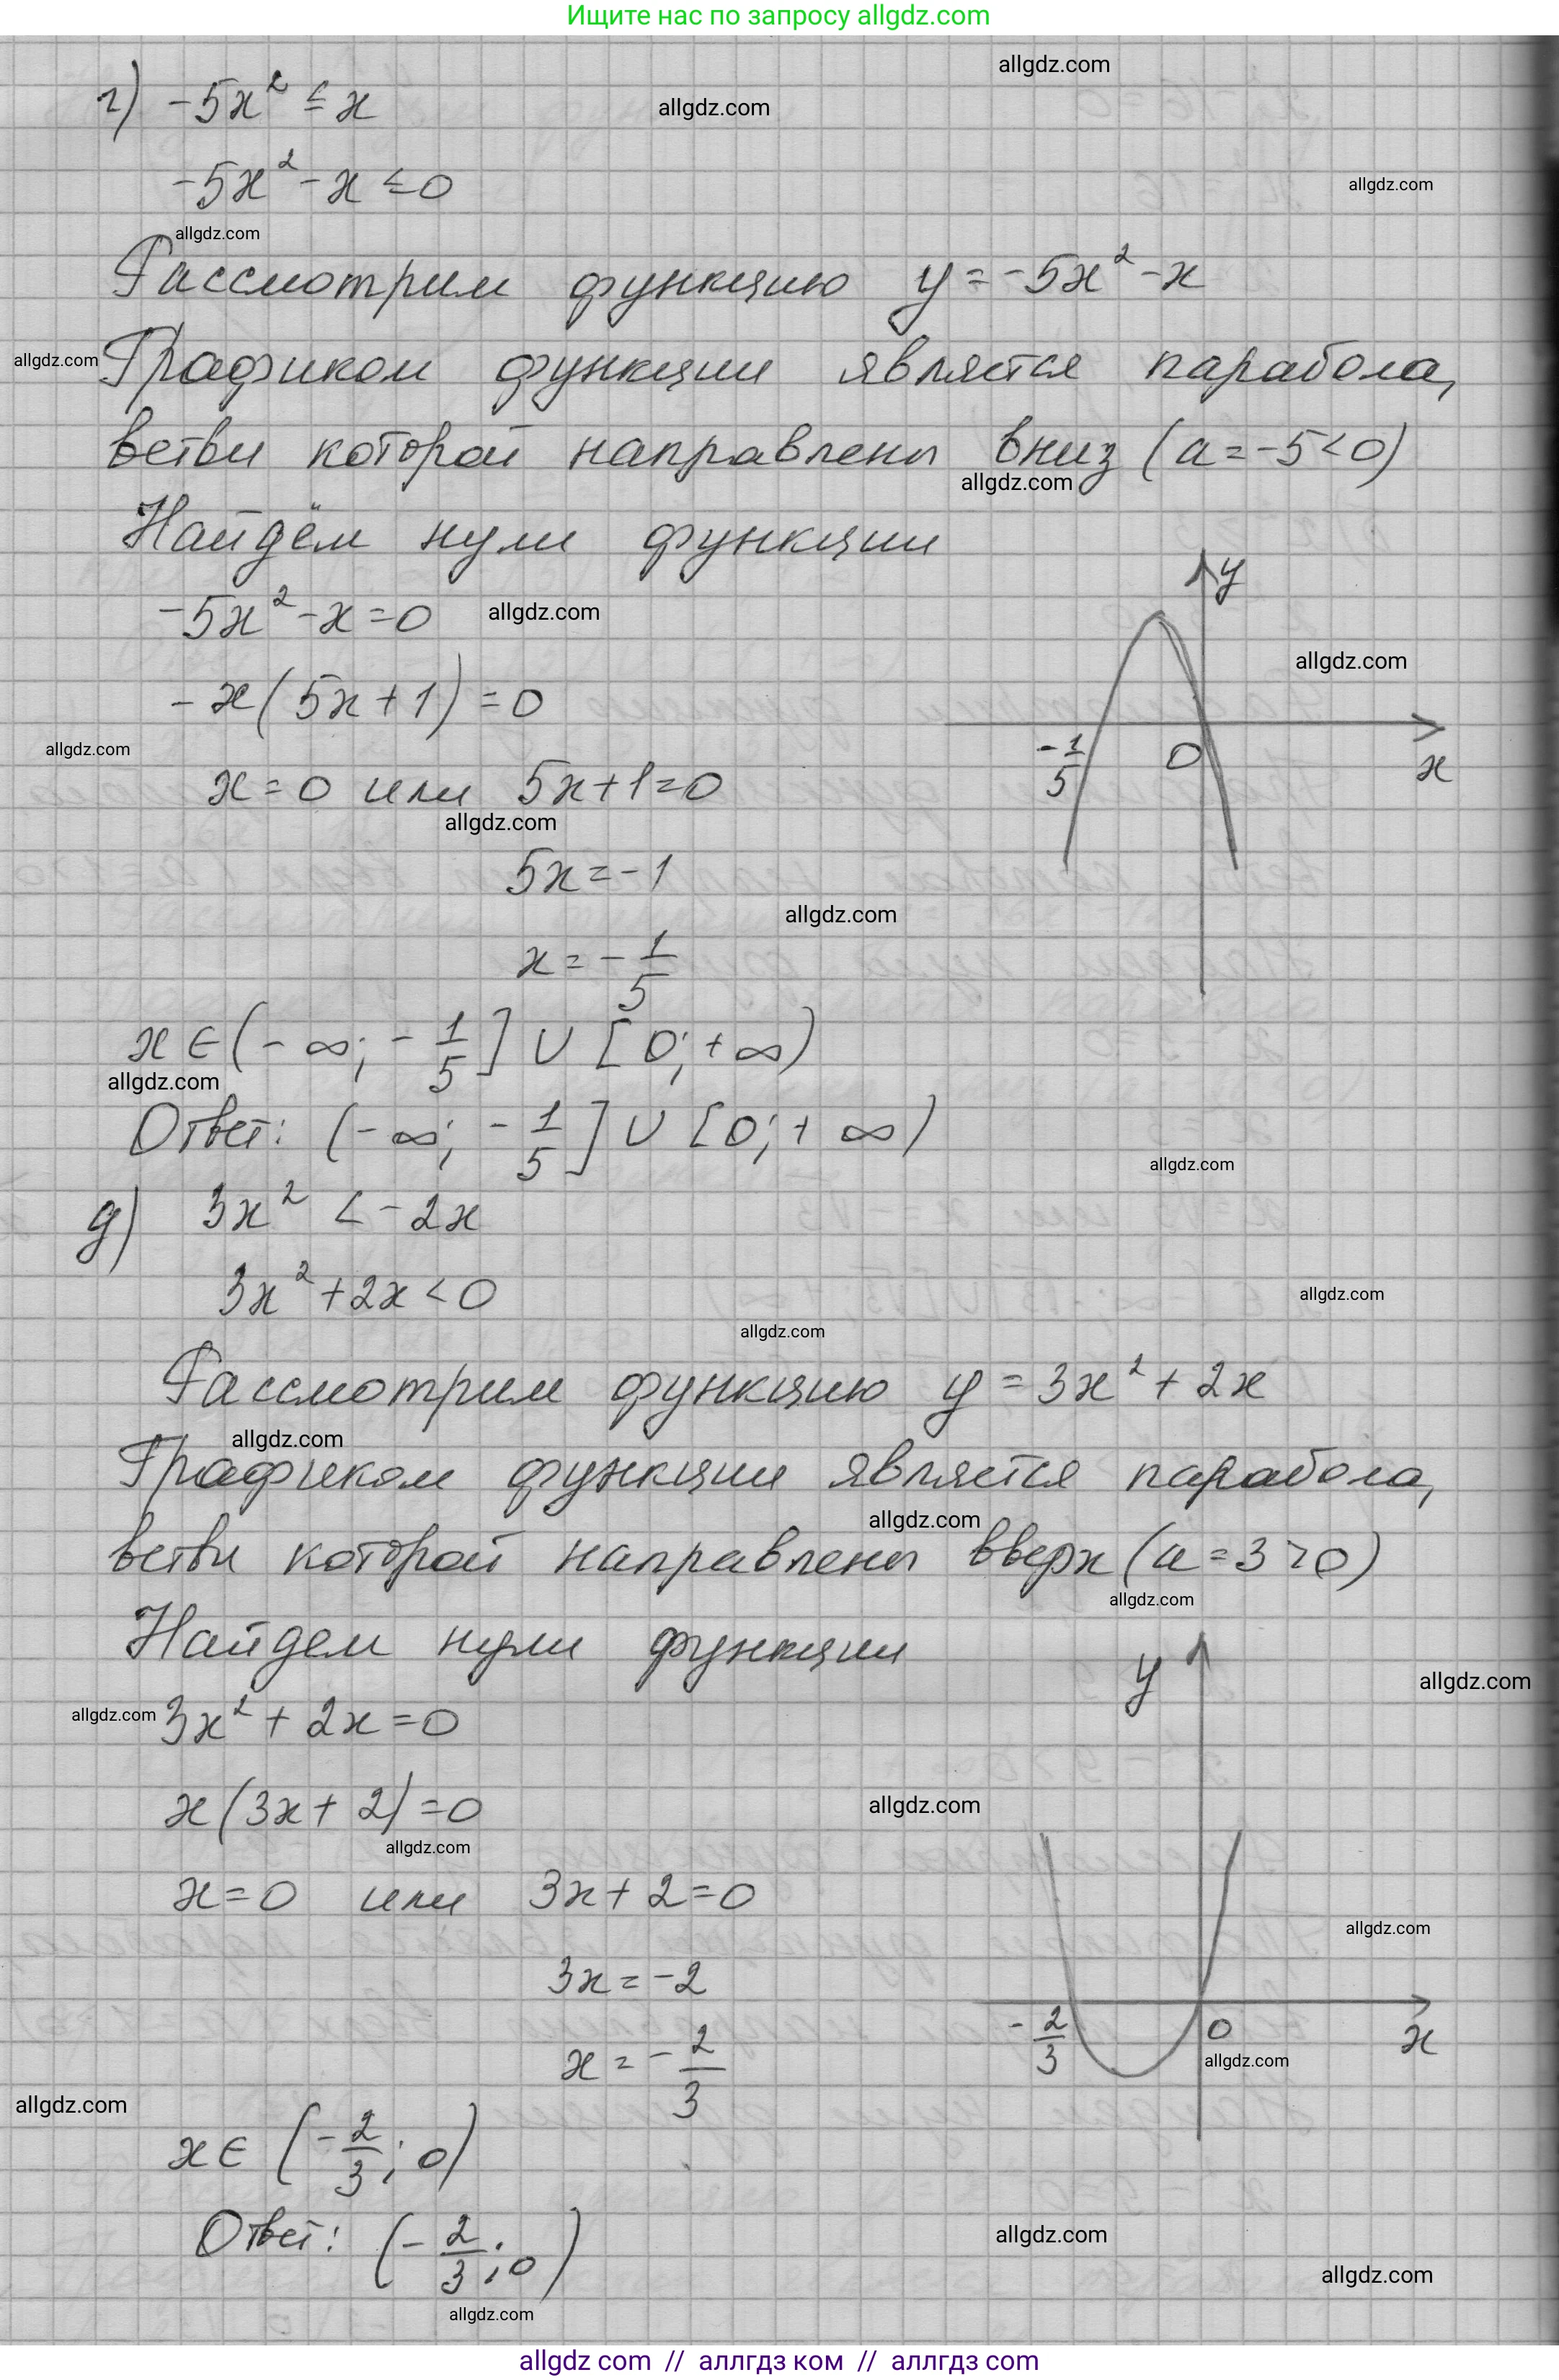 Ищите нас по запросу allgdz.com
allgdz.com
г) -5x² ≤ x
allgdz.com
-5x² - x ≤ 0
allgdz.com
allgdz.com
Рассмотрим функцию y = -5x² - x
allgdz.com
Графиком функции является парабола,
ветви которой направлены вниз (a = -5 < 0)
allgdz.com
Найдём нули функции
y
-5x² - x = 0
allgdz.com
allgdz.com
-x(5x + 1) = 0
allgdz.com
-1/5 0 x
x = 0 или 5x + 1 = 0
allgdz.com
5x = -1
allgdz.com
x = -1/5
x ∈ (-∞; -1/5] ∪ [0; +∞)
allgdz.com
Ответ: (-∞; -1/5] ∪ [0; +∞)
allgdz.com
д) 3x² < -2x
3x² + 2x < 0
allgdz.com
allgdz.com
Рассмотрим функцию y = 3x² + 2x
allgdz.com
Графиком функции является парабола,
allgdz.com
ветви которой направлены вверх (a = 3 > 0)
allgdz.com
Найдем нули функции
y
allgdz.com
allgdz.com
3x² + 2x = 0
x(3x + 2) = 0
allgdz.com
allgdz.com
x = 0 или 3x + 2 = 0
allgdz.com
3x = -2
-2/3 0 x
allgdz.com
x = -2/3
allgdz.com
x ∈ (-2/3; 0)
Ответ: (-2/3; 0)
allgdz.com
allgdz.com
allgdz.com
allgdz com // аллгдз ком // аллгдз com